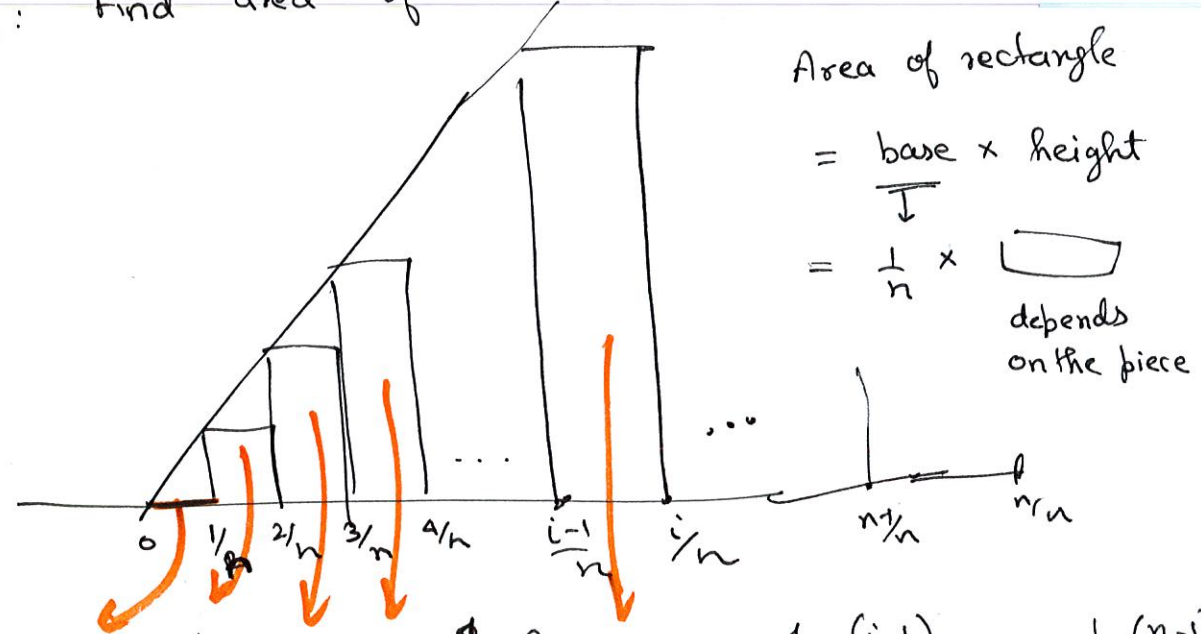 : Find area of
Area of rectangle
= base × height
= 1/n ×
depends
on the piece
... ...
0 1/n 2/n 3/n 4/n i-1/n i/n n-1/n n/n
(i-1)